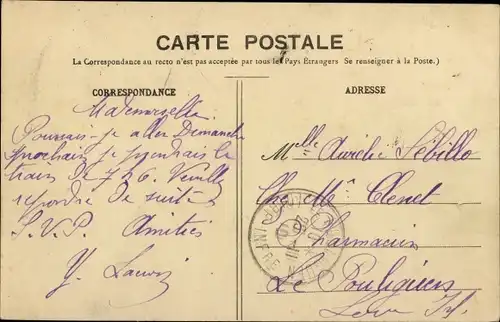 CARTE POSTALE
La Correspondance au recto n'est pas acceptée par tous les Pays Étrangers Se renseigner à la Poste.)
CORRESPONDANCE
Mademoiselle
Pourrais-je aller Dimanche
prochain je prendrais le
train de 7 h 26. Veuillez
repondre de suite
S.V.P. Amitiés
Y.
ADRESSE
Mlle Aurélie Sébillo
Chez Mr Clenet
Pharmacien
Le Pouliguen
Loire Inf.